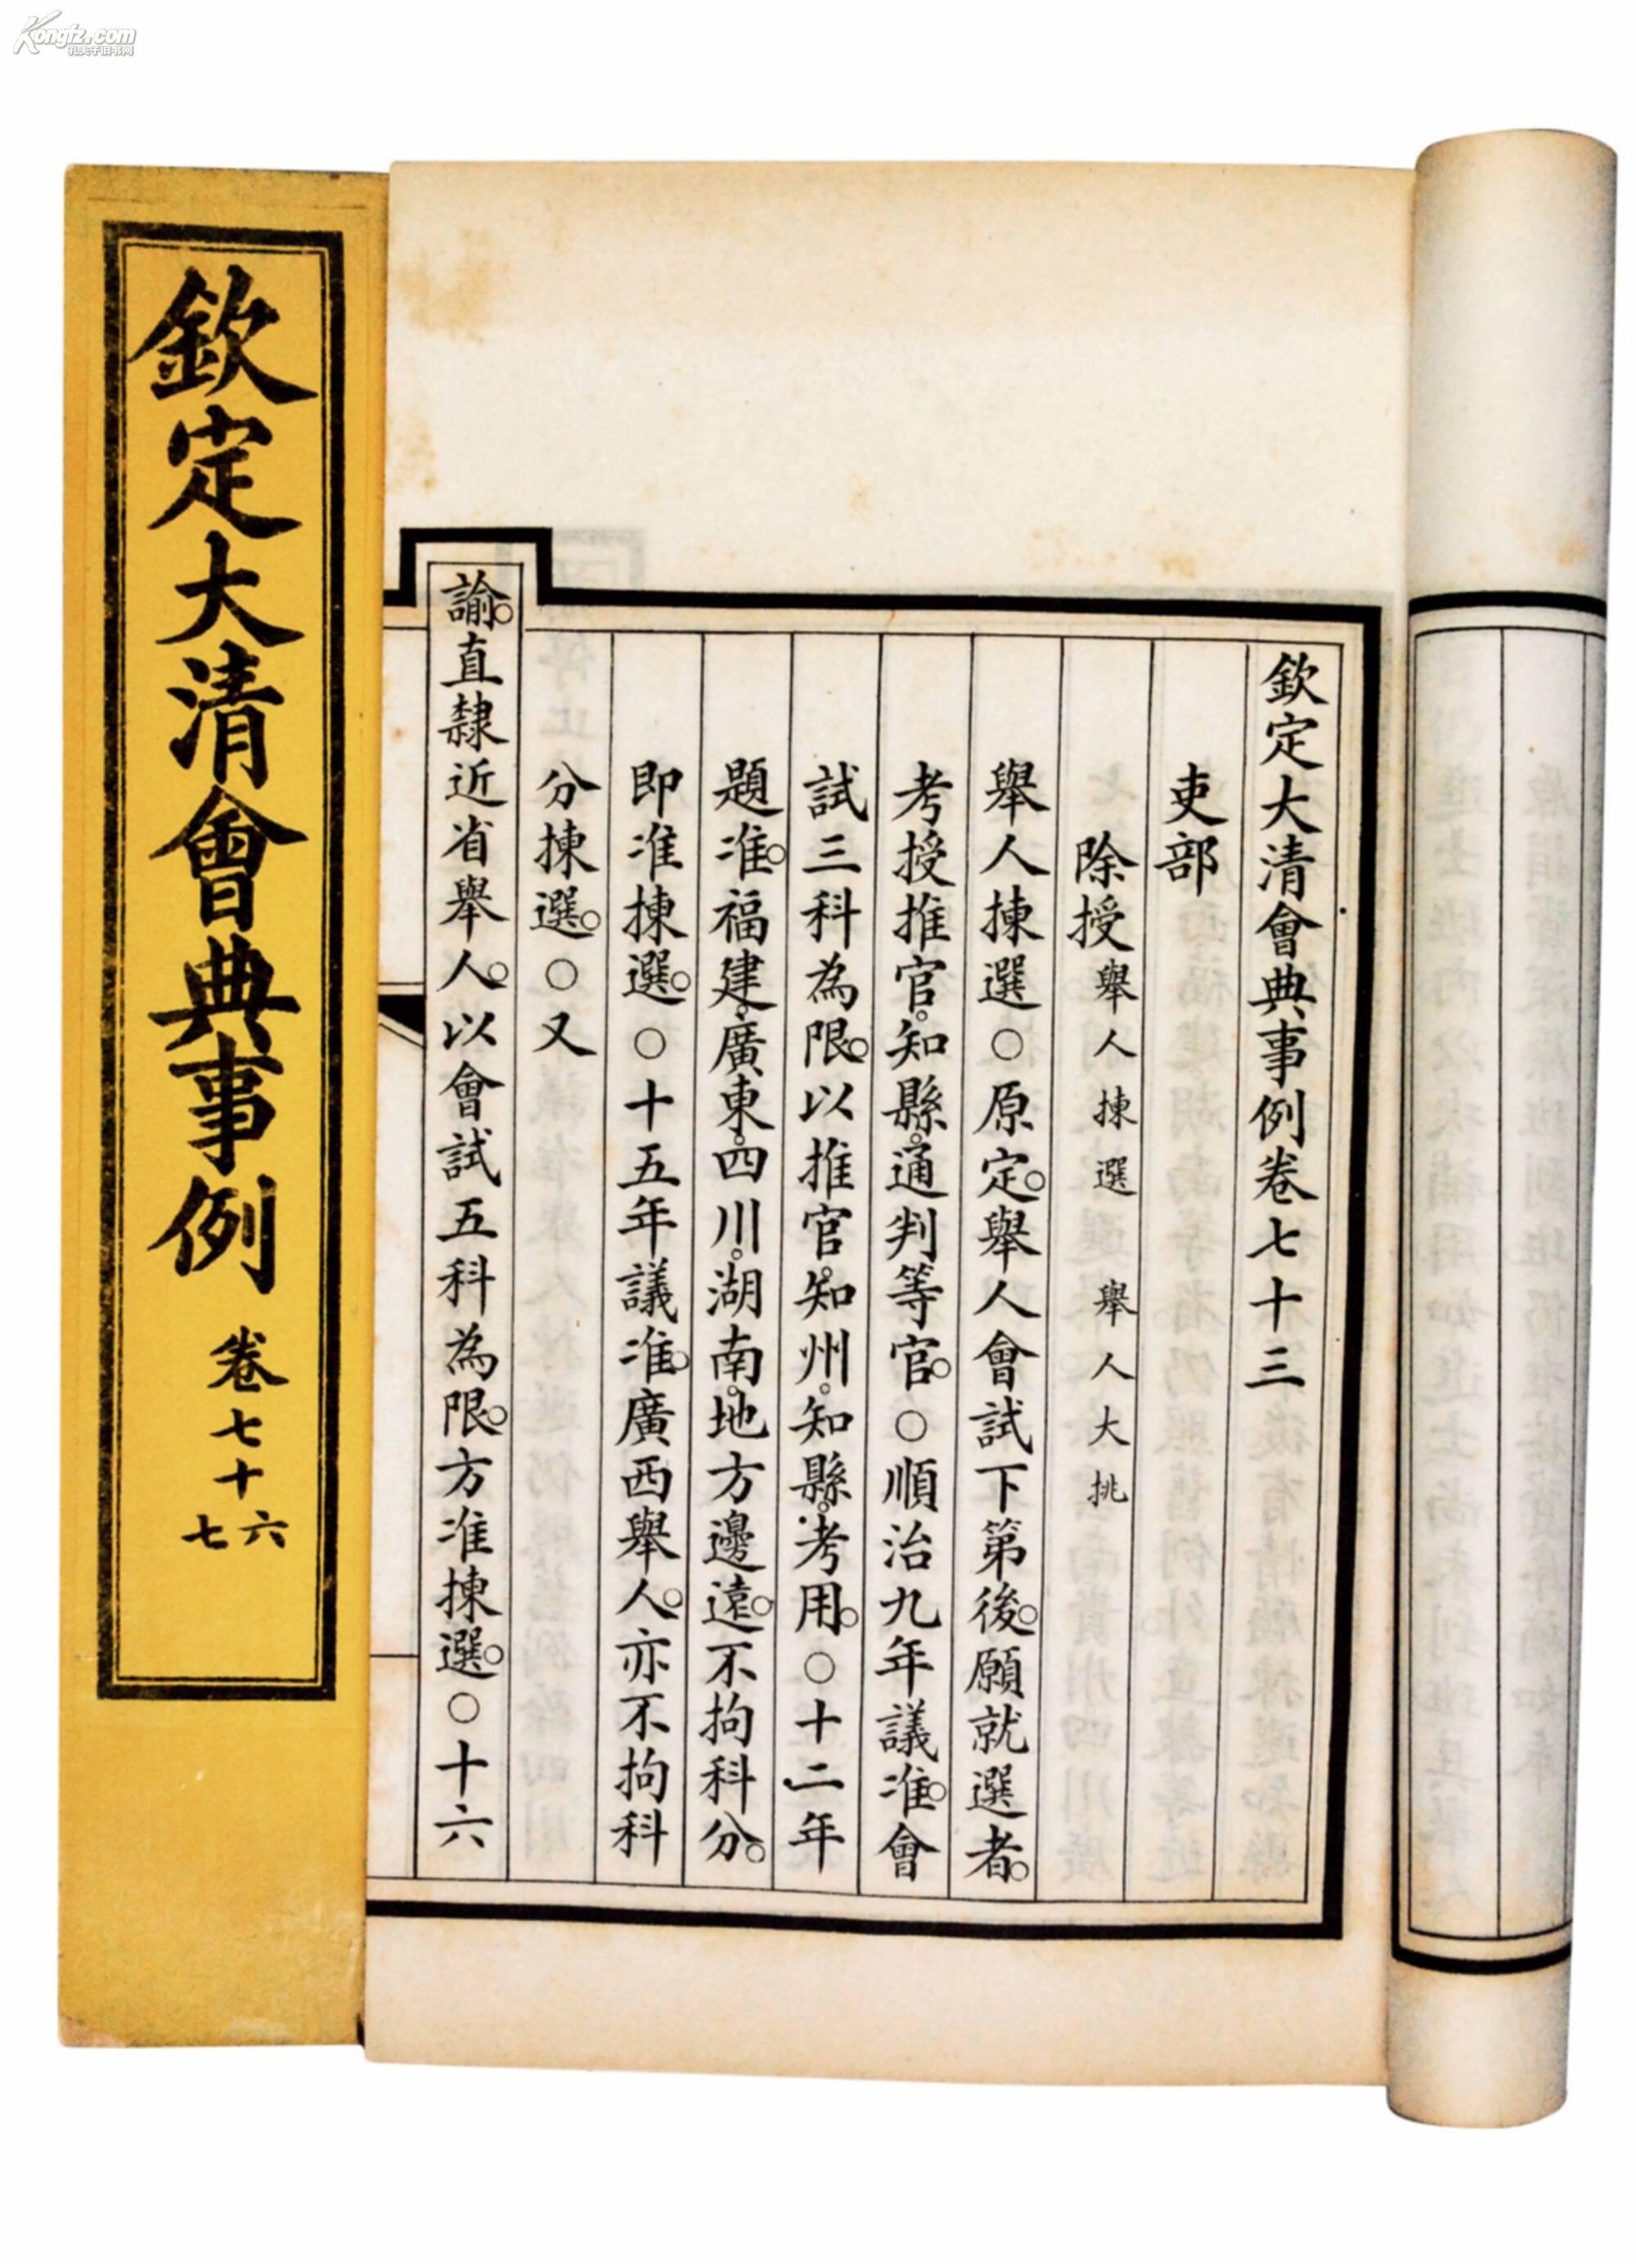 Kongfz.com
孔夫子旧书网
欽定大清會典事例卷七十三
吏部
除授舉人揀選 舉人大挑
舉人揀選○原定。舉人會試下第後。願就選者。
考授推官。知縣。通判等官。○順治九年議准。會
試三科為限。以推官。知州。知縣。考用。○十二年
題准。福建。廣東。四川。湖南。地方邊遠。不拘科分。
即准揀選。○十五年議准。廣西舉人。亦不拘科
分揀選。○又
諭。直隸近省舉人。以會試五科為限。方准揀選。○十六
欽定大清會典事例 卷七十六七